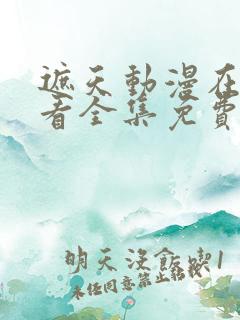 遮天動漫在
看全集免費
明天沒飯喫1
未任同意禁止轉載